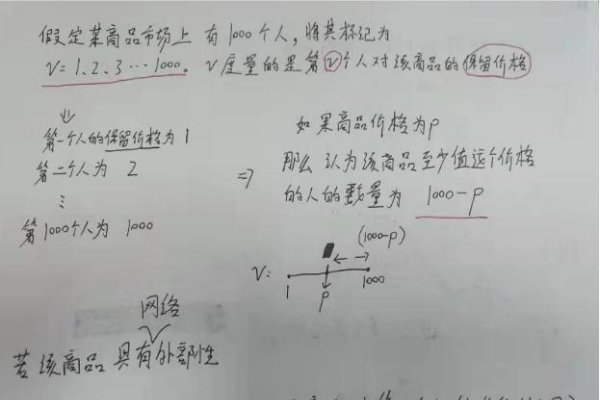 假定某商品市场上 有1000个人，将其标记为
v=1.2.3…1000。v度量的是第v个人对该商品的保留价格
⇓
第一个人的保留价格为1
第二个人为 2
⋮
第1000个人为 1000
⇒
如果商品价格为p
那么认为该商品至少值这个价格
的人的数量为 1000-p
(1000-p)
v:
1 p 1000
网络
若该商品具有外部性